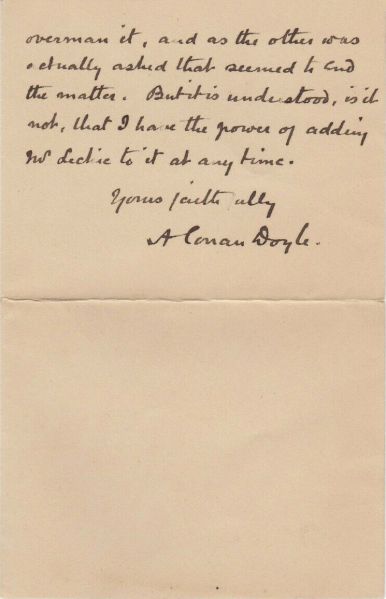 overman it, and as the other was
actually asked that seemed to end
the matter. But it is understood, is it
not, that I have the power of adding
Mr Leckie to it at any time.
Yours faithfully
A Conan Doyle.